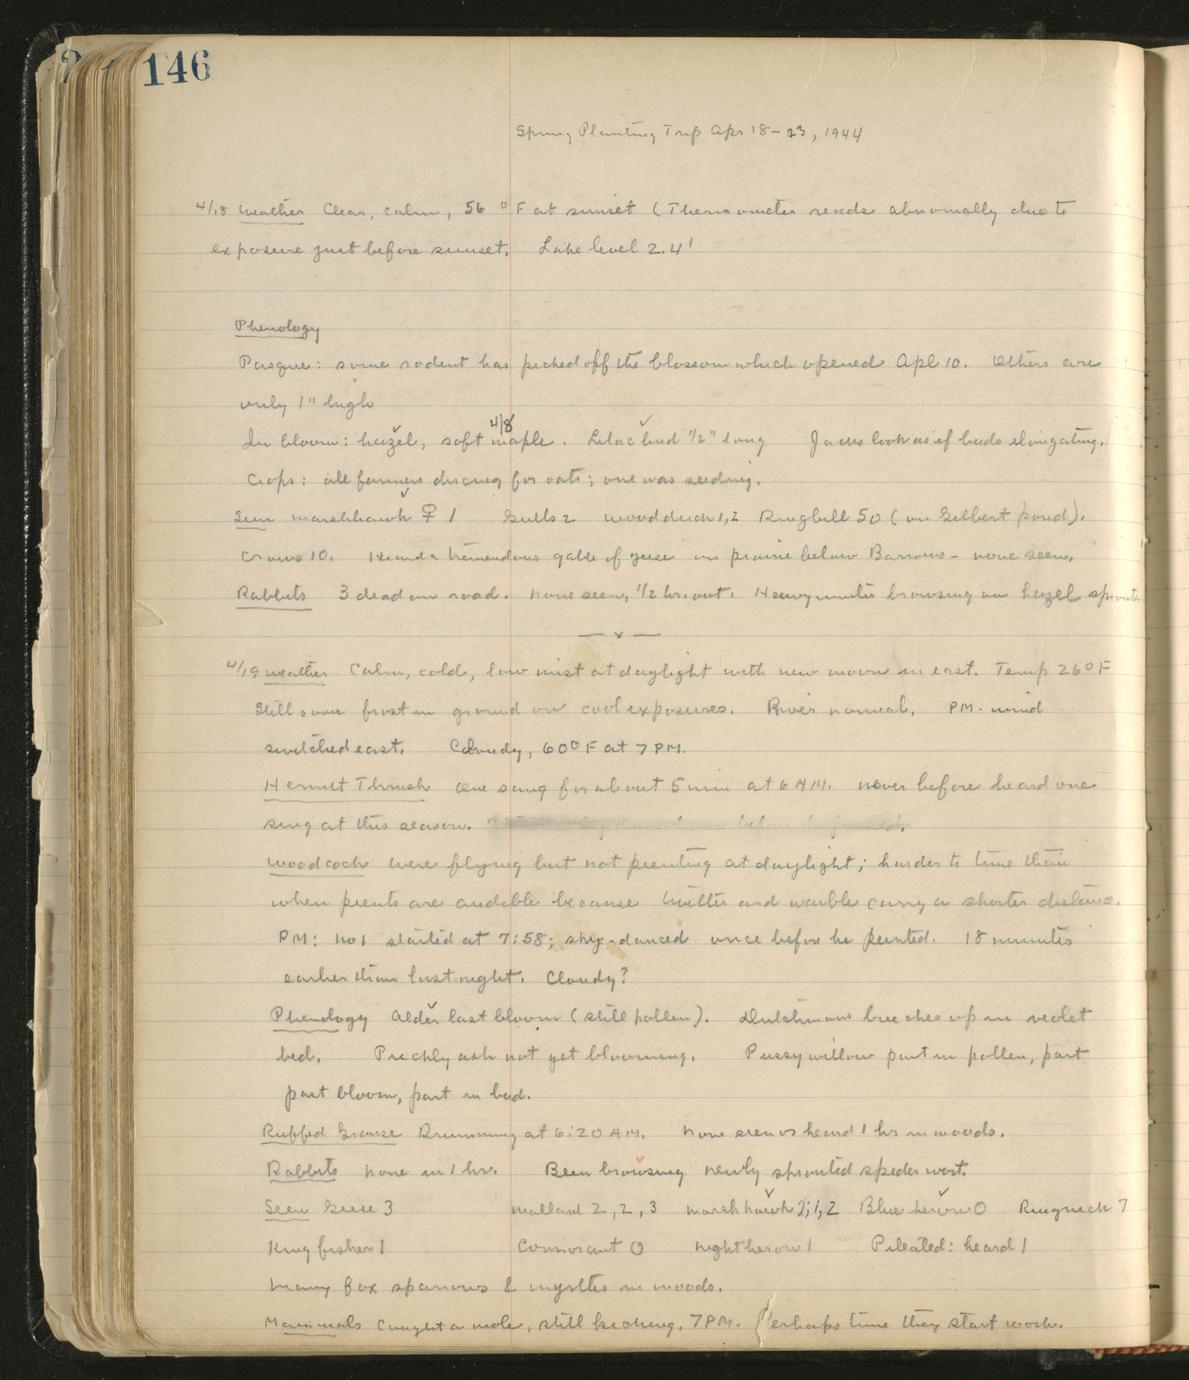 146
Spring Planting Trip Apr 18-23, 1944
4/18 Weather Clear, calm, 56 °F at sunset (Thermometer reads abnormally due to
exposure just before sunset. Lake level 2.4'
Phenology
Pasque: some rodent has picked off the blossom which opened Apl 10. Others are
only 1" high
In bloom: hazel, soft maple. 4/8 Lilac bud 1/2" long Jacks look as if buds elongating.
Crops: all farmers discing for oats; one was seeding.
Seen marshhawk ♀ 1 Gulls 2 woodduck 1,2 Ringbill 50 (on Gilbert pond).
Crows 10. Heard a tremendous gable of geese on prairie below Barrows - none seen.
Rabbits 3 dead on road. None seen, 1/2 hr. out. Heavy winter browsing on hazel sprouts.
— x —
4/19 Weather Calm, cold, low mist at daylight with new moon in east. Temp 26° F
Still some frost in ground on cool exposures. River normal. PM. wind
switched east. Cloudy, 60° F at 7 PM.
Hermit Thrush One sang for about 5 min at 6 AM. never before heard one
sing at this season.
Woodcock were flying but not peenting at daylight; harder to time than
when peents are audible because twitter and warble carry a shorter distance.
PM: No 1 started at 7:58; sky-danced once before he peented. 18 minutes
earlier than last night. Cloudy?
Phenology Alder last bloom (still pollen). Dutchmans breeches up in violet
bed. Prickly ash not yet blooming. Pussywillow part in pollen, part
part bloom, part in bud.
Ruffed Grouse Drumming at 6:20 AM. None seen or heard 1 hr in woods.
Rabbits None in 1 hr. Been browsing newly sprouted spider wort.
Seen Geese 3 mallard 2, 2, 3 marshhawk 2; 1, 2 Blue heron 0 Ringneck 7
Kingfisher 1 Cormorant 0 nightheron 1 Pileated: heard 1
Many fox sparrows & myrtles in woods.
Mammals Caught a mole, still kicking, 7 PM. Perhaps time they start work.